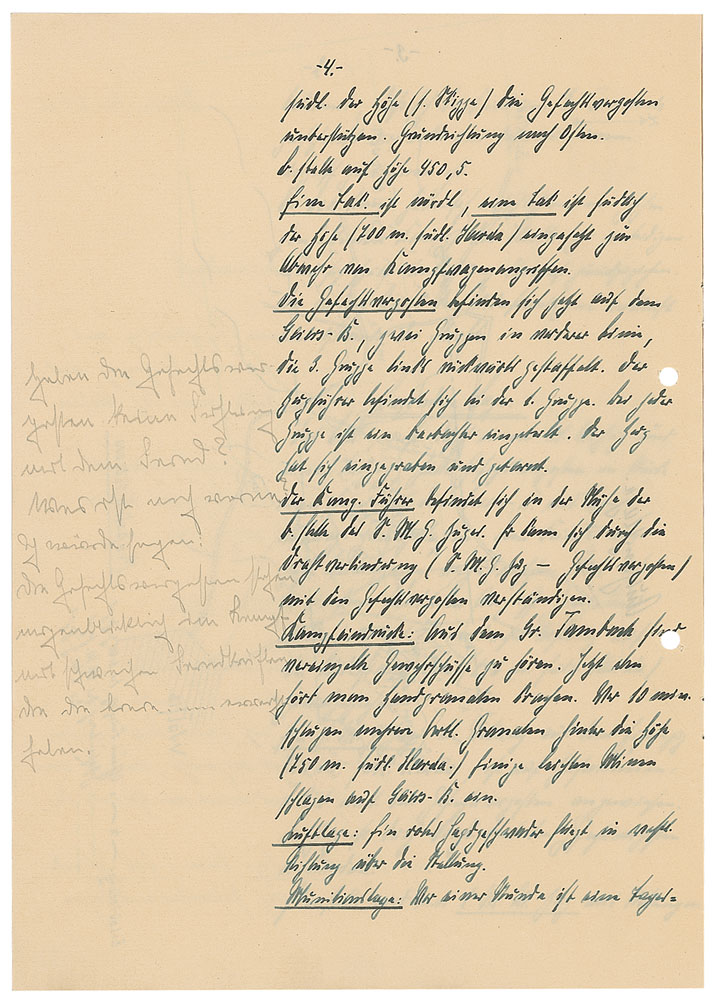 -4.-
südl. der Höhe (s. Skizze) die Gefechtsvorposten
unterstützen. Grundrichtung nach Osten.
B. Stelle auf Höhe 450,5.
Eine Pak. ist nördl., eine Pak ist südlich
der Höhe (700 m. südl. Warda) eingesetzt zur
Abwehr von Kampfwagenangriffen.
Die Gefechtsvorposten befinden sich jetzt auf dem
Geiers-B., zwei Gruppen in vorderer Linie,
die 3. Gruppe links rückwärts gestaffelt. Der
Zugführer befindet sich bei der Gruppe. Bei jeder
Gruppe ist ein Beobachter eingeteilt. Der Zug
hat sich eingegraben und getarnt.
Der Komp. Führer befindet sich in der Nähe der
B. Stelle des S. M. G. Zuges. Er kann sich durch die
Drahtverbindung (S. M. G. Zug — Gefechtsvorposten)
mit den Gefechtsvorposten verständigen.
Kampfeindrücke: Aus dem Gr. Tambach sind
vereinzelte Gewehrschüsse zu hören. Jetzt
hört man Handgranaten krachen. Vor 10 min.
schlugen mehrere Artl. Granaten hinter die Höhe
(750 m. südl. Warda.) Einige leichte Minen
schlagen auf Geiers-B. ein.
Luftlage: Ein rotes Jagdgeschwader fliegt in westl.
Richtung über die Stellung.
Munitionslage: Vor einer Stunde ist eine Tages=
Haben die Gefechtsvor-
posten keine Fühlung
mit dem Feind?
Was ist noch vorne?
Ich würde sagen:
Die Gefechtsvorposten stehen
augenblicklich im Kampf
mit schwachen Feindkräften
die die
haben.